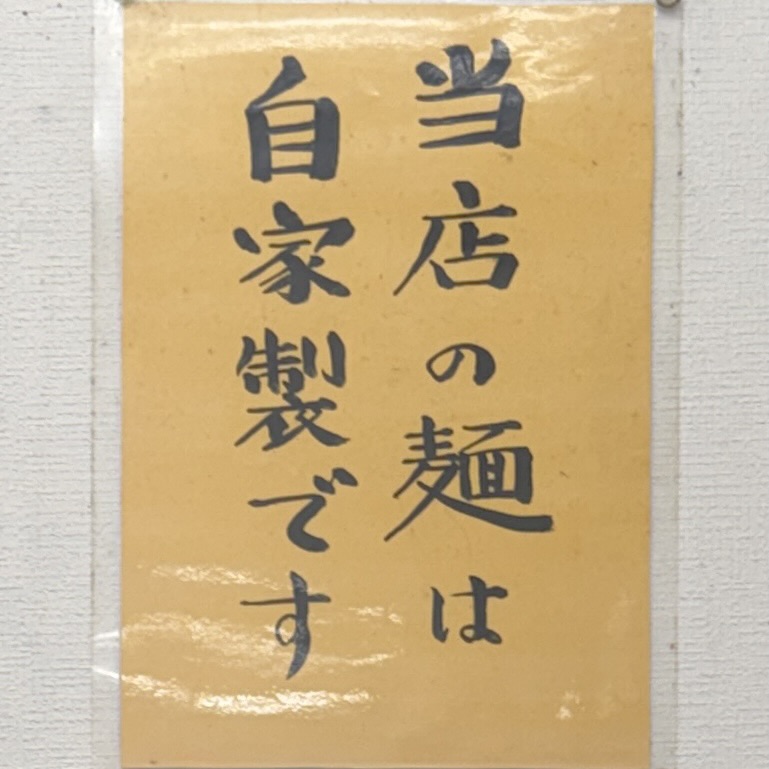 当店の麺は
自家製です